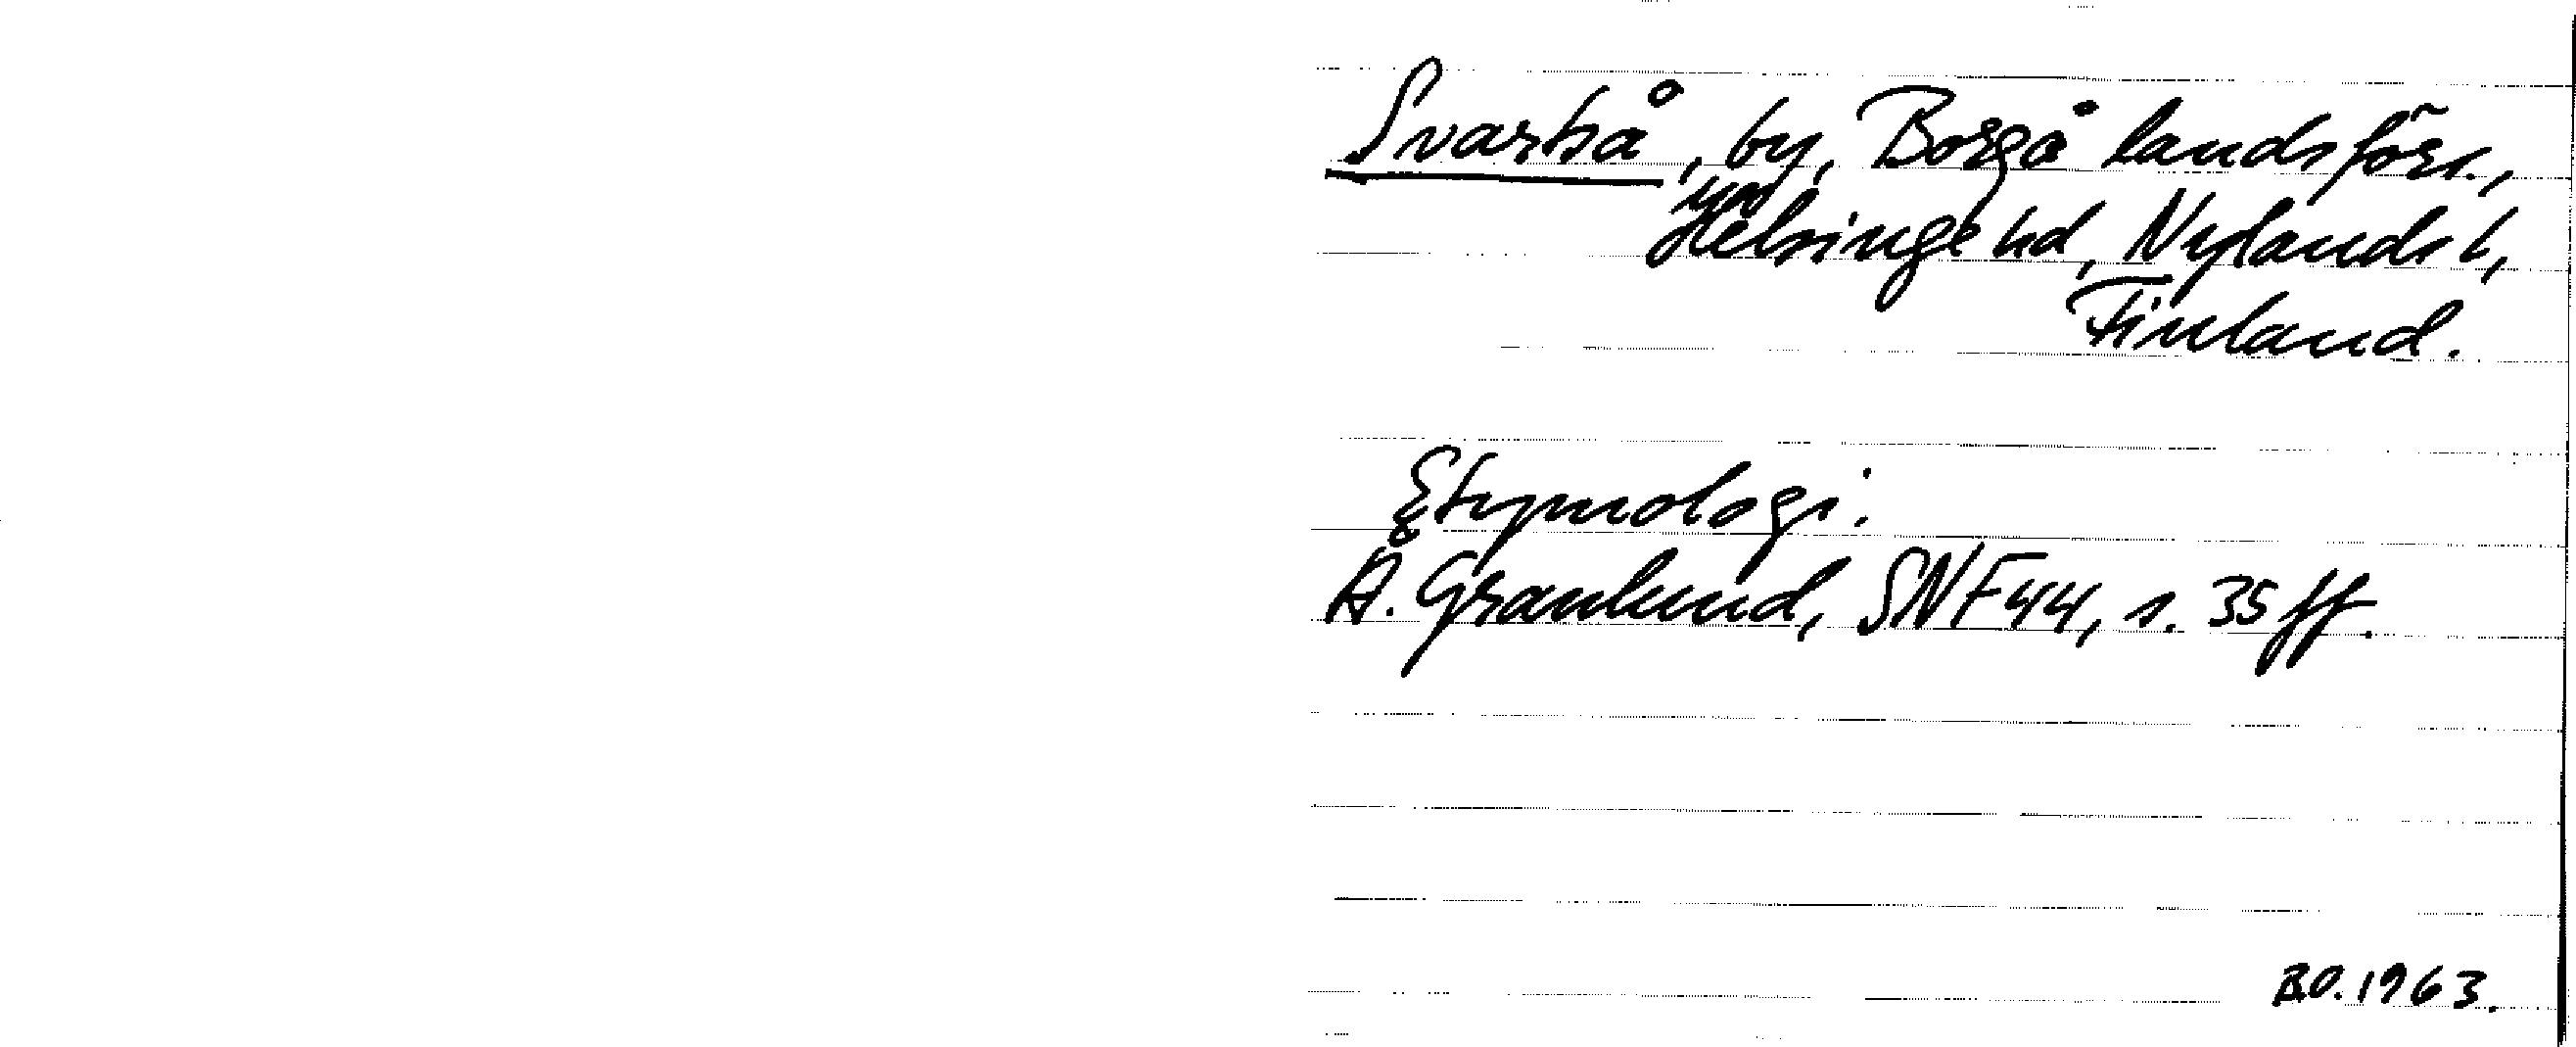 Svartså, by, Borgå landsförs.,
Helsinge hd, Nylands l,
Finland.
Etymologi.
Å. Granlund, SNF 44, s. 35 ff.
B.O. 1963.